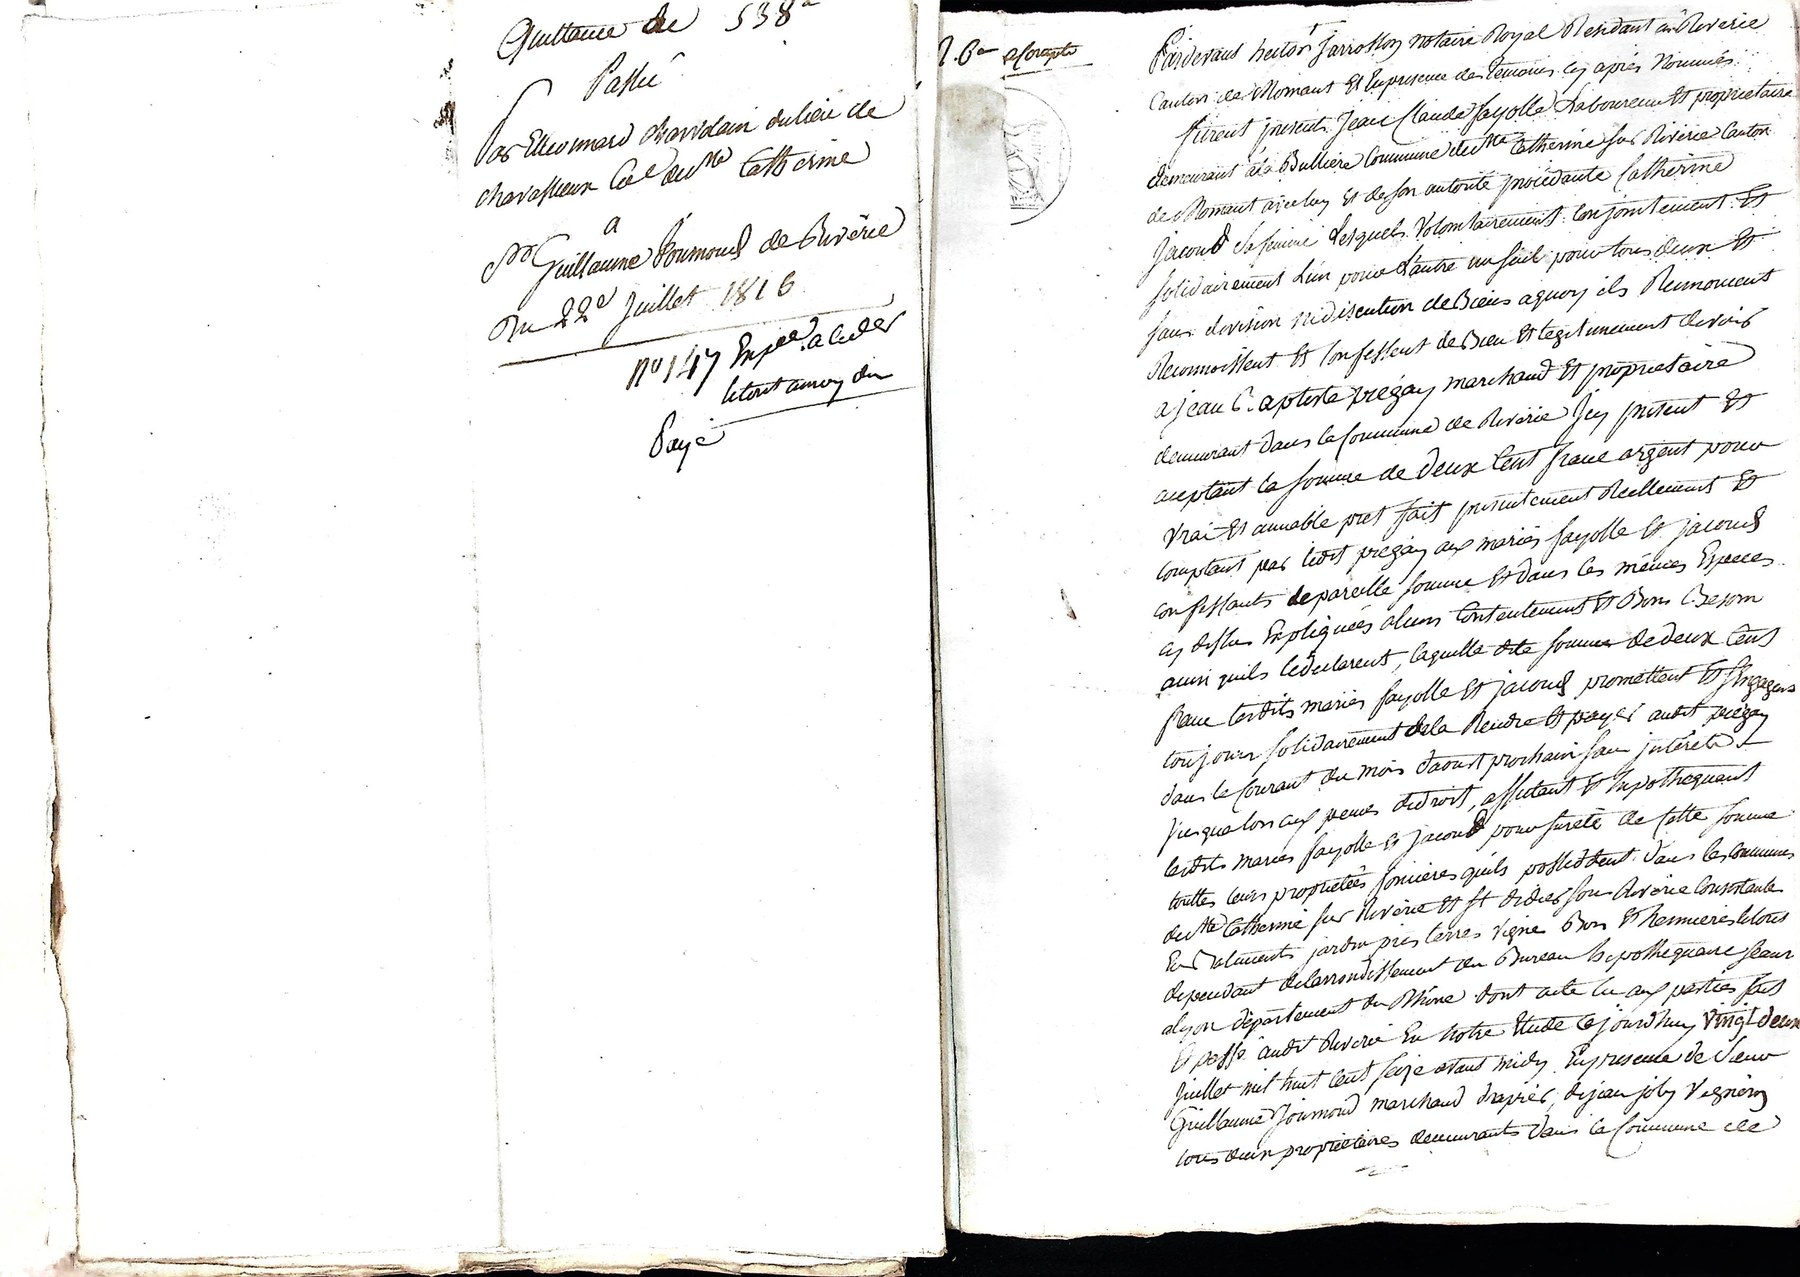 Quittance de 538
Passé
Par Eleonnard chardain du lieu de
chavassieux Cne de Ste Catherine
a
Sr Guillaume Joumoud de Riverie
Du 22e Juillet 1816
no 147 Expée a ceder
le tout au moy du
Payé
a Compte
Pardevant hector Jarrosson notaire Royal Residant a Riverie
Canton de Mornant Et En presence des temoins cy après Nommés
furent presents Jean Claude fayolle Laboureur Et propriétaire
demeurant a la Bulliere Commune de Ste Catherine sur Riverie Canton
de Mornant avec luy Et de son autorité procedante Catherine
Jacoud sa femme Lesquels Volontairement Conjointement Et
solidairement L'un pour L'autre un seul pour tous deux Et
sans division ni discution de Biens a quoy ils Renoncent
Reconnoissent Et Confessent de Bien Et legitimement devoir
a jean Baptiste prégay marchand Et propriétaire
demeurant dans la Commune de Riverie Icy présent Et
aceptant la somme de deux Cent franc argent pour
vrai Et amiable pret fait présentement Reellement Et
comptant par ledit prégay aux mariés fayolle Et jacoud
confessants de pareille somme Et dans les mêmes Especes
cy dessus Expliquées a leurs Contentement Et Bons Besoin
ainsi quils le declarent, laquelle dite somme de deux Cent
franc lesdits mariés fayolle Et jacoud promettent Et s'Engagent
toujours solidairement de la Rendre Et payer audit prégay
dans le Courant du mois d'aoust prochain sans intérêts
jusque lors aux peines de droit, affectant Et hypothequant
lesdits mariés fayolle Et Jacoud pour sureté de Cette somme
touttes leurs propriétés foncieres quils possèdent dans les Communes
de Ste Catherine sur Riverie Et st didier sous Riverie Consistante
En Batiments jardin prés terres Vigne Bois Et hermieres le tous
dependant de l'arrondissement du Bureau hypothequaire seant
a lyon département du Rhône dont acte lu aux parties fait
Et passé audit Riverie En notre Etude Cejourd'huy vingt deux
Juillet mil huit cent seize avant midy En presence de Sieur
Guillaume Joumoud marchand drapier, de jean joly Vigneron
tous deux propriétaires demeurants dans la Commune de